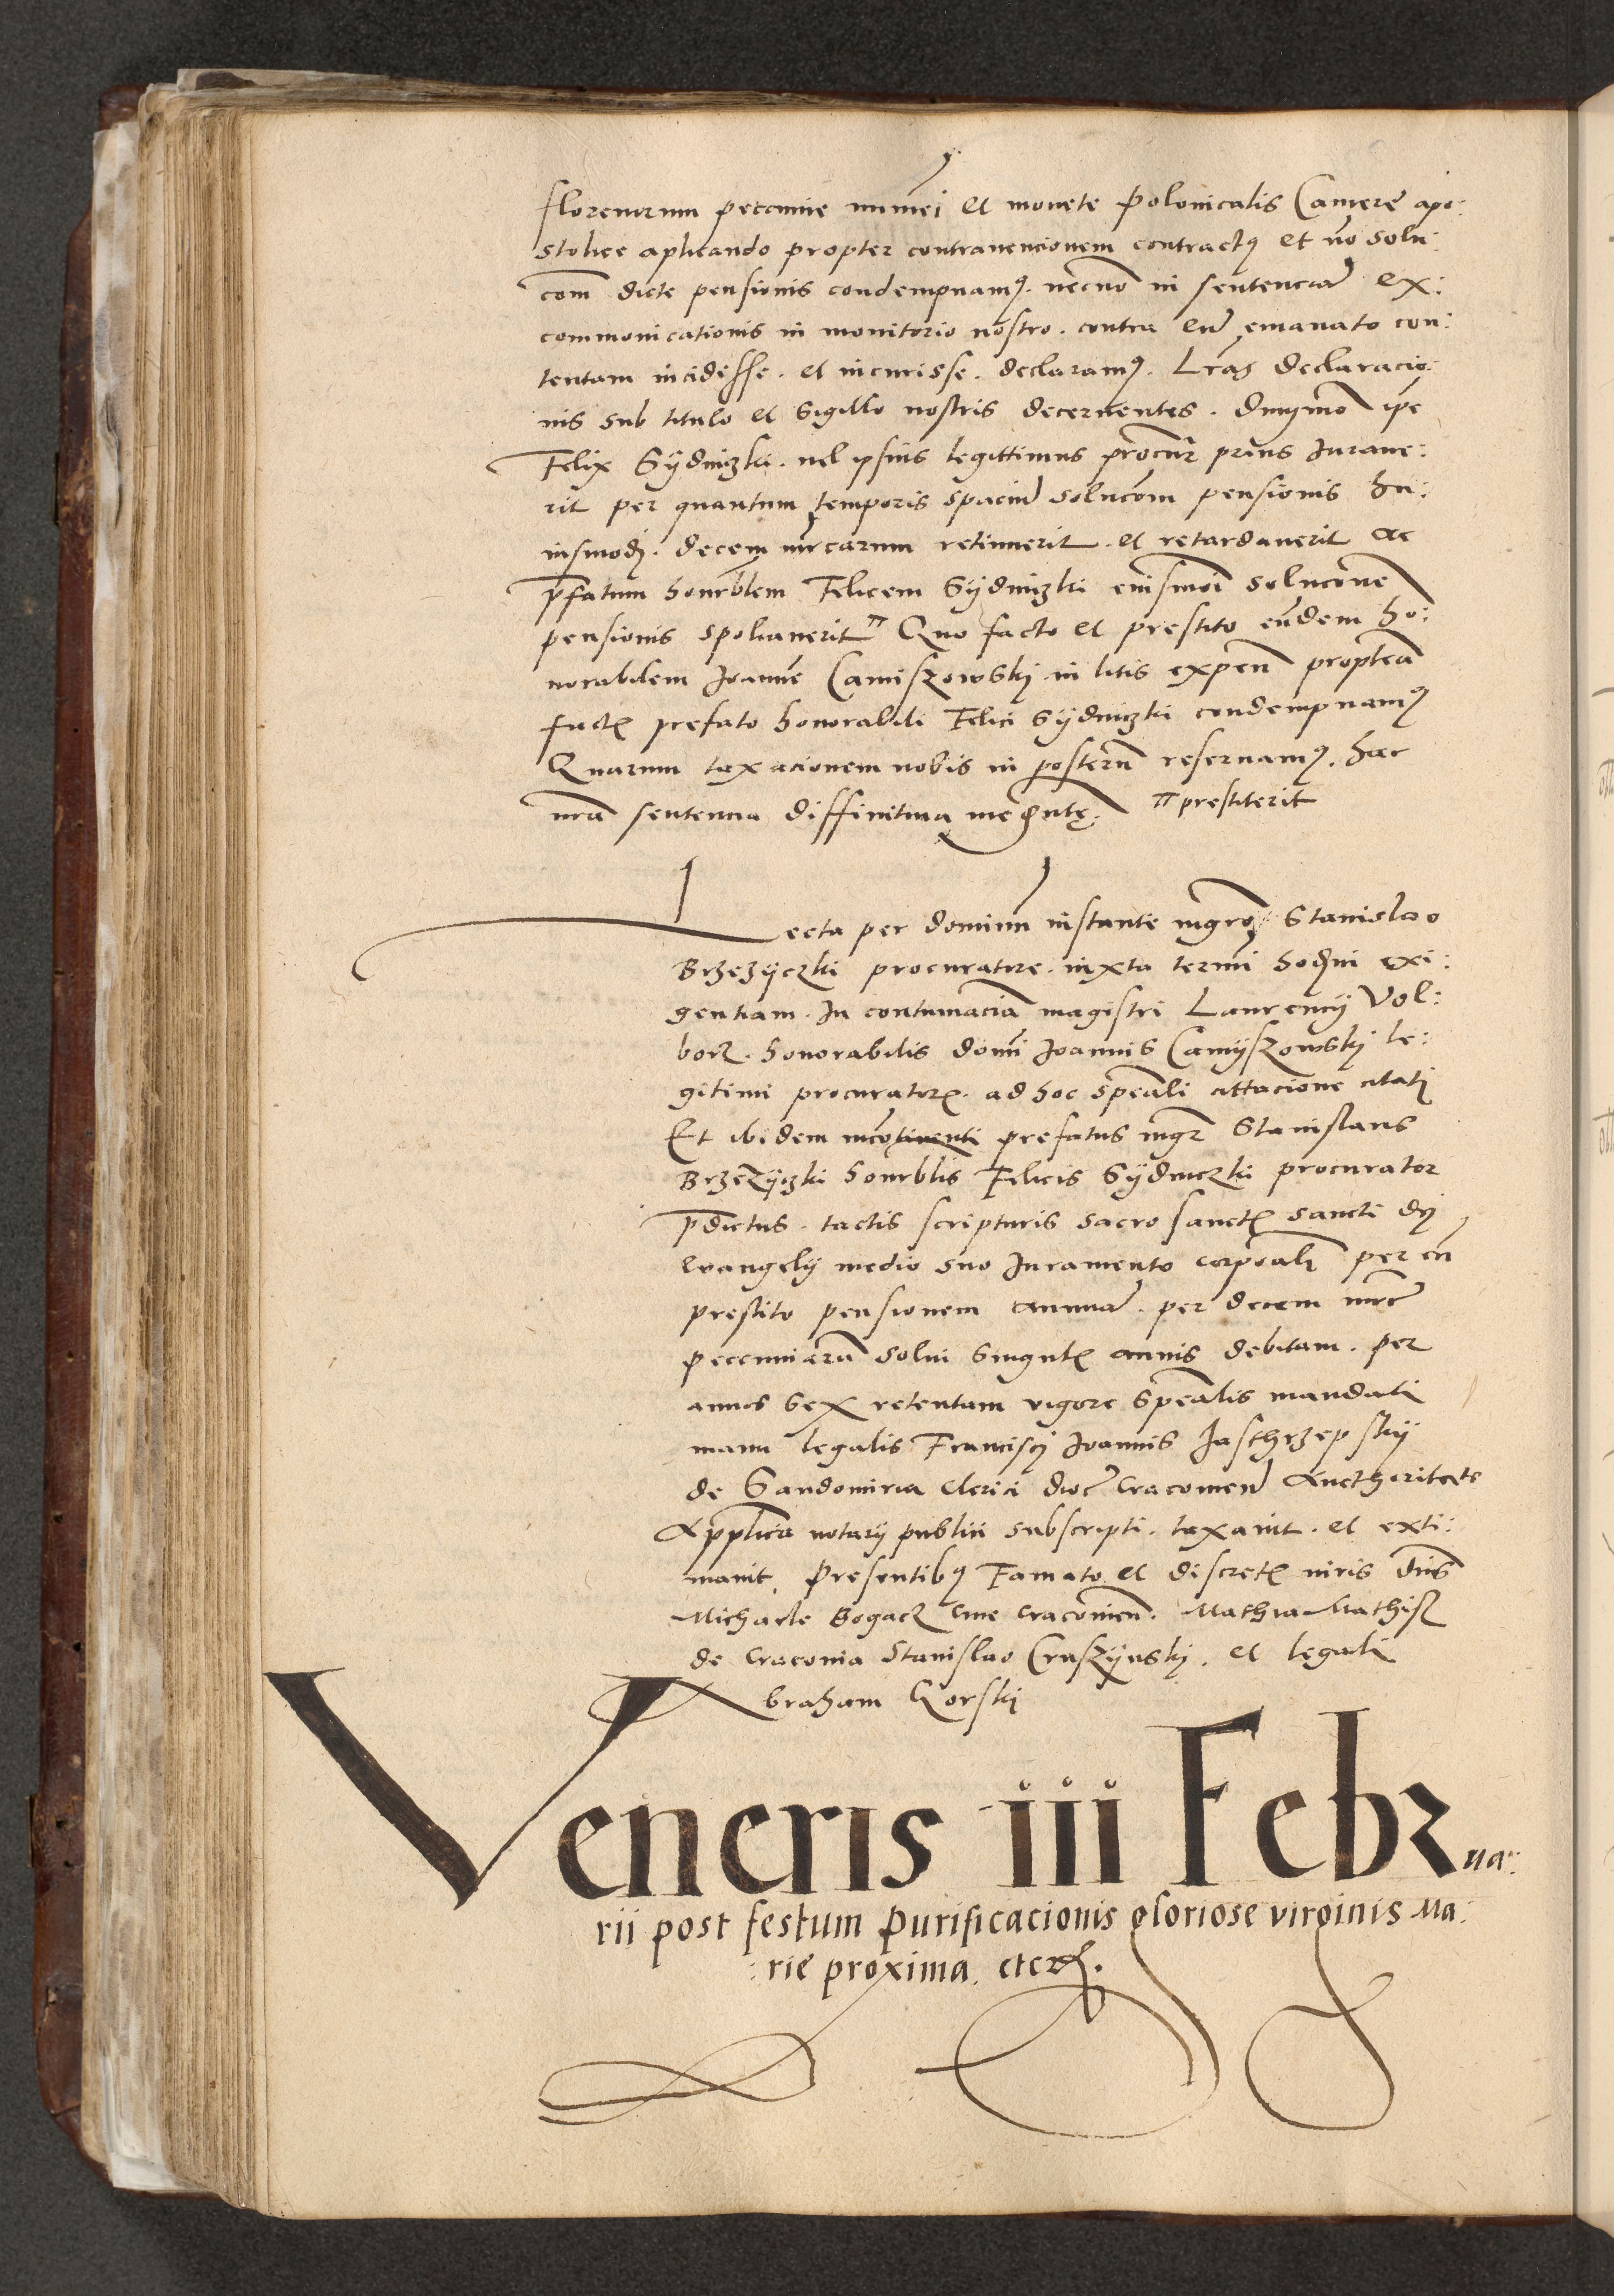 florenorum pecunie numeri et monete Polonicalis Camere apo:
stolice aplicando propter contravencionem contractus et no solu:
com dicte pensionis condempnamus. necno in sentencia ex:
commonicationis in monitorio nostro. contra eu emanato con:
tentam incidesse. et incurisse. declaramus. Lras declaracio:
nis sub titulo et sigillo nostris decernentes. Dumo ipe
Felix Gÿdniczki. vel ipsius legittimus procur prius Iurave:
rit per quantum temporis spaciu solucom pensionis hu:
iusmodi. decem mrcarum retinuerit. et retardaverit ac
pfatum honrblem Felicem Gÿdniczki eiusmoi solucone
pensionis spoliaverit π Quo facto et prestito eundem ho:
norabilem Joanne Camiszowskj in litis expen proptea
factis prefato honorabili Felici Gÿdniczki condempnamus
Quarum taxacionem nobis in posteru reservamus. hac
nra sentencia diffinitiva mediante. π prestiterit
Lecta per dominum instante mgro Stanislao
Brzezÿczki procuratore. iuxta termi hodierni exi:
gentiam. In contumacia magistri Laurencij Vol:
borz. honorabilis domi Joannis Camÿszowskj le:
gitimi procuratoris. ad hoc speali cittacione citati
Et ibidem incotinenti prefatus mgr Stanislaus
Brzezÿczki honrblis Felicis Gÿdniczki procurator
pdictus. tactis scripturis sacro sanctis sancti dei
evangelij medio suo Iuramento corporali per eu
prestito pensionem annua. per decem mrc
peccuniaru solvi singulis annis debitam. per
annos sex retentam vigore spealis mandati
manu legalis Francisci Joannis Jasthrzepskÿ
de Sandomiria clerici dioc cracovien Aucthoritate
Applica notarij publici subscripti. taxavit. et exti:
mavit. Presentibus Famato et discretis viris dnis
Michaele Bogacz cive cracovien. Mathia Mathisz
de cracovia Stanislao Cruszÿnskj. et legali
Abraham Gorskj
Veneris iii Februa:
rii post festum purificacionis gloriose virginis Ma:
:rie proxima. etcr.